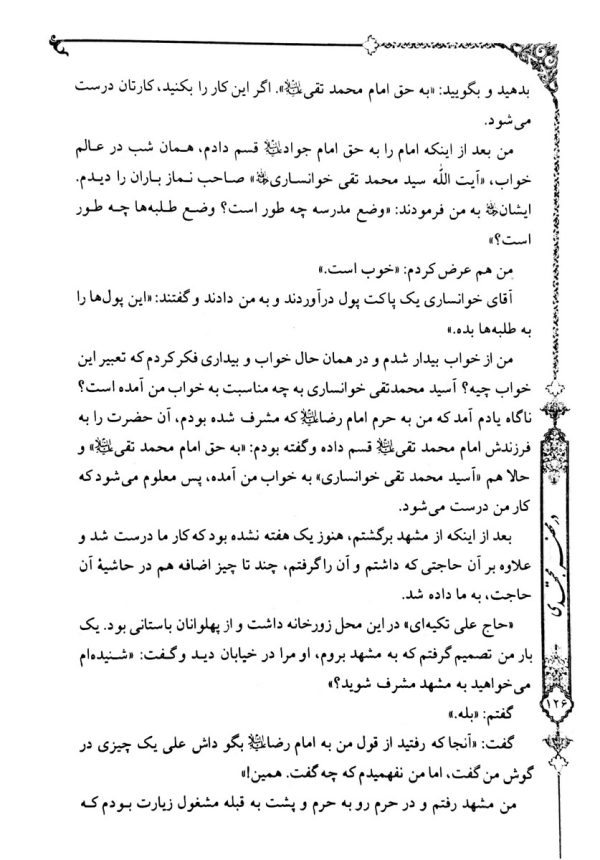 بدهید و بگویید: «به حق امام محمد تقی علیه‌السلام». اگر این کار را بکنید، کارتان درست
می‌شود.
من بعد از اینکه امام را به حق امام جواد علیه‌السلام قسم دادم، همان شب در عالم
خواب، «آیت الله سید محمد تقی خوانساری ره» صاحب نماز باران را دیدم.
ایشان ره به من فرمودند: «وضع مدرسه چه طور است؟ وضع طلبه‌ها چه طور
است؟»
من هم عرض کردم: «خوب است.»
آقای خوانساری یک پاکت پول درآوردند و به من دادند و گفتند: «این پول‌ها را
به طلبه‌ها بده.»
من از خواب بیدار شدم و در همان حال خواب و بیداری فکر کردم که تعبیر این
خواب چیه؟ آسید محمدتقی خوانساری به چه مناسبت به خواب من آمده است؟
ناگاه یادم آمد که من به حرم امام رضا علیه‌السلام که مشرف شده بودم، آن حضرت را به
فرزندش امام محمد تقی علیه‌السلام قسم داده و گفته بودم: «به حق امام محمد تقی علیه‌السلام» و
حالا هم «آسید محمد تقی خوانساری» به خواب من آمده، پس معلوم می‌شود که
کار من درست می‌شود.
بعد از اینکه از مشهد برگشتم، هنوز یک هفته نشده بود که کار ما درست شد و
علاوه بر آن حاجتی که داشتم و آن را گرفتم، چند تا چیز اضافه هم در حاشیهٔ آن
حاجت، به ما داده شد.
«حاج علی تکیه‌ای» در این محل زورخانه داشت و از پهلوانان باستانی بود. یک
بار من تصمیم گرفتم که به مشهد بروم، او مرا در خیابان دید و گفت: «شنیده‌ام
می‌خواهید به مشهد مشرف شوید؟»
گفتم: «بله.»
گفت: «آنجا که رفتید از قول من به امام رضا علیه‌السلام بگو داش علی یک چیزی در
گوش من گفت، اما من نفهمیدم که چه گفت. همین!»
من مشهد رفتم و در حرم رو به حرم و پشت به قبله مشغول زیارت بودم که
در محضر مجتهدی
۱۲۶